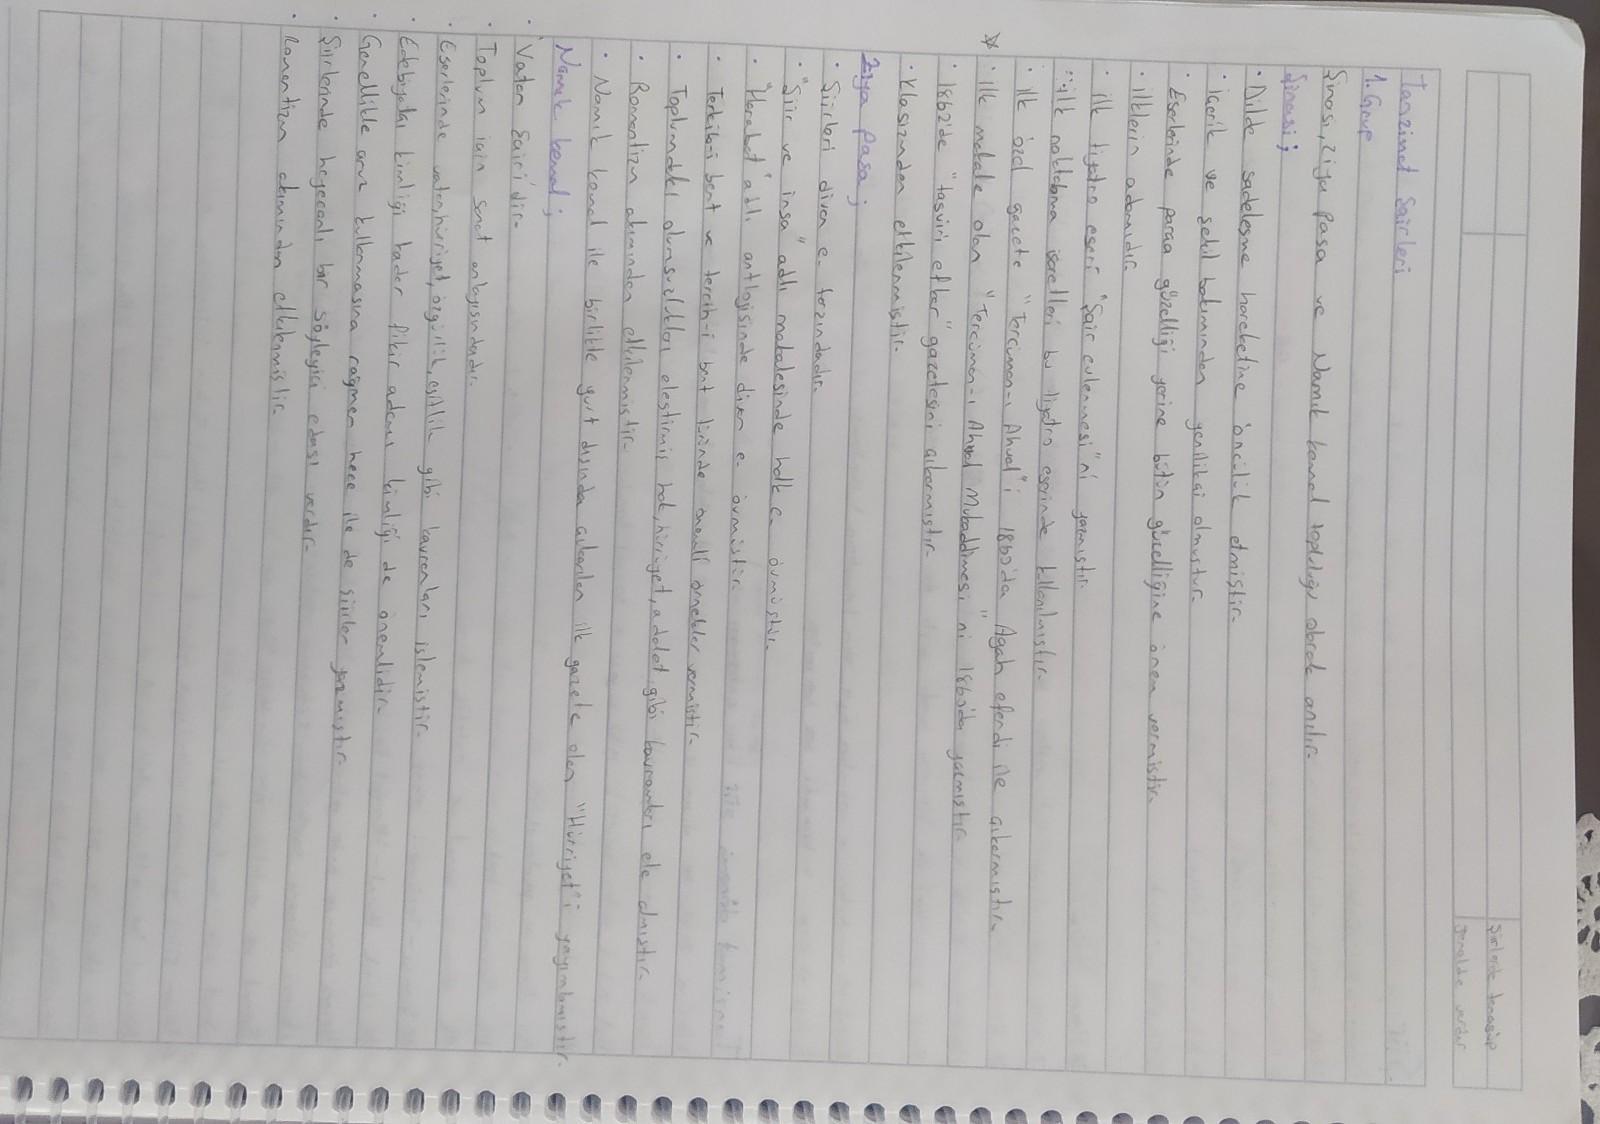 Şiirlerde tenasüp
genelde vardır
Tanzimat Şairleri
1. Grup
Şinasi, ziya paşa ve Namık kemal topluluğu olarak anılır.
Şinasi;
• Dilde sadeleşme hareketine öncülük etmiştir.
• içerik ve şekil bakımından yenilikçi olmuştur.
• Eserlerinde parça güzelliği yerine bütün güzelliğine önem vermiştir.
• ilklerin adamıdır.
• ilk tiyatro eseri "Şair evlenmesi"ni yazmıştır.
• ilk noktalama işaretleri bu tiyatro eserinde kllanılmıştır.
• ilk özel gazete "Tercüman-ı Ahval"i 1860'da Agah efendi ile çıkarmıştır.
☆ • ilk makale olan "Tercüman-ı Ahval Mukaddimesi"ni 1860'da yazmıştır.
• 1862'de "tasviri efkar" gazetesini çıkarmıştır.
• Klasizmden etkilenmiştir.
Ziya paşa;
• Şiirleri divan e. tarzındadır.
• "Şiir ve inşa" adlı makalesinde halk e. övmüştür.
• "Harabat" adlı antolojisinde divan e. övmüştür.
• Terkib-i bent ve terci-i bent türünde önemli örnekler vermiştir.
• Toplumdaki olumsuzlukları eleştirmiş hak, hürriyet, adalet, gibi kavramları ele almıştır.
• Romantizm akımından etkilenmiştir.
• Namık kemal ile birlikte yurt dışında çıkarılan ilk gazete olan "Hürriyet"i yayımlamıştır.
Namık kemal;
• 'Vatan Şairi'dir.
• Toplum için sanat anlayışındadır.
• Eserlerinde vatan, hürriyet, özgürlük, eşitlik gibi kavramları işlemiştir.
• Edebiyatçı kimliği kadar fikir adamı kimliği de önemlidir.
• Genellikle aruz kullanmasına rağmen hece ile de şiirler yazmıştır.
• Şiirlerinde heyecanlı bir söyleyiş edası vardır.
• Romantizm akımından etkilenmiştir.